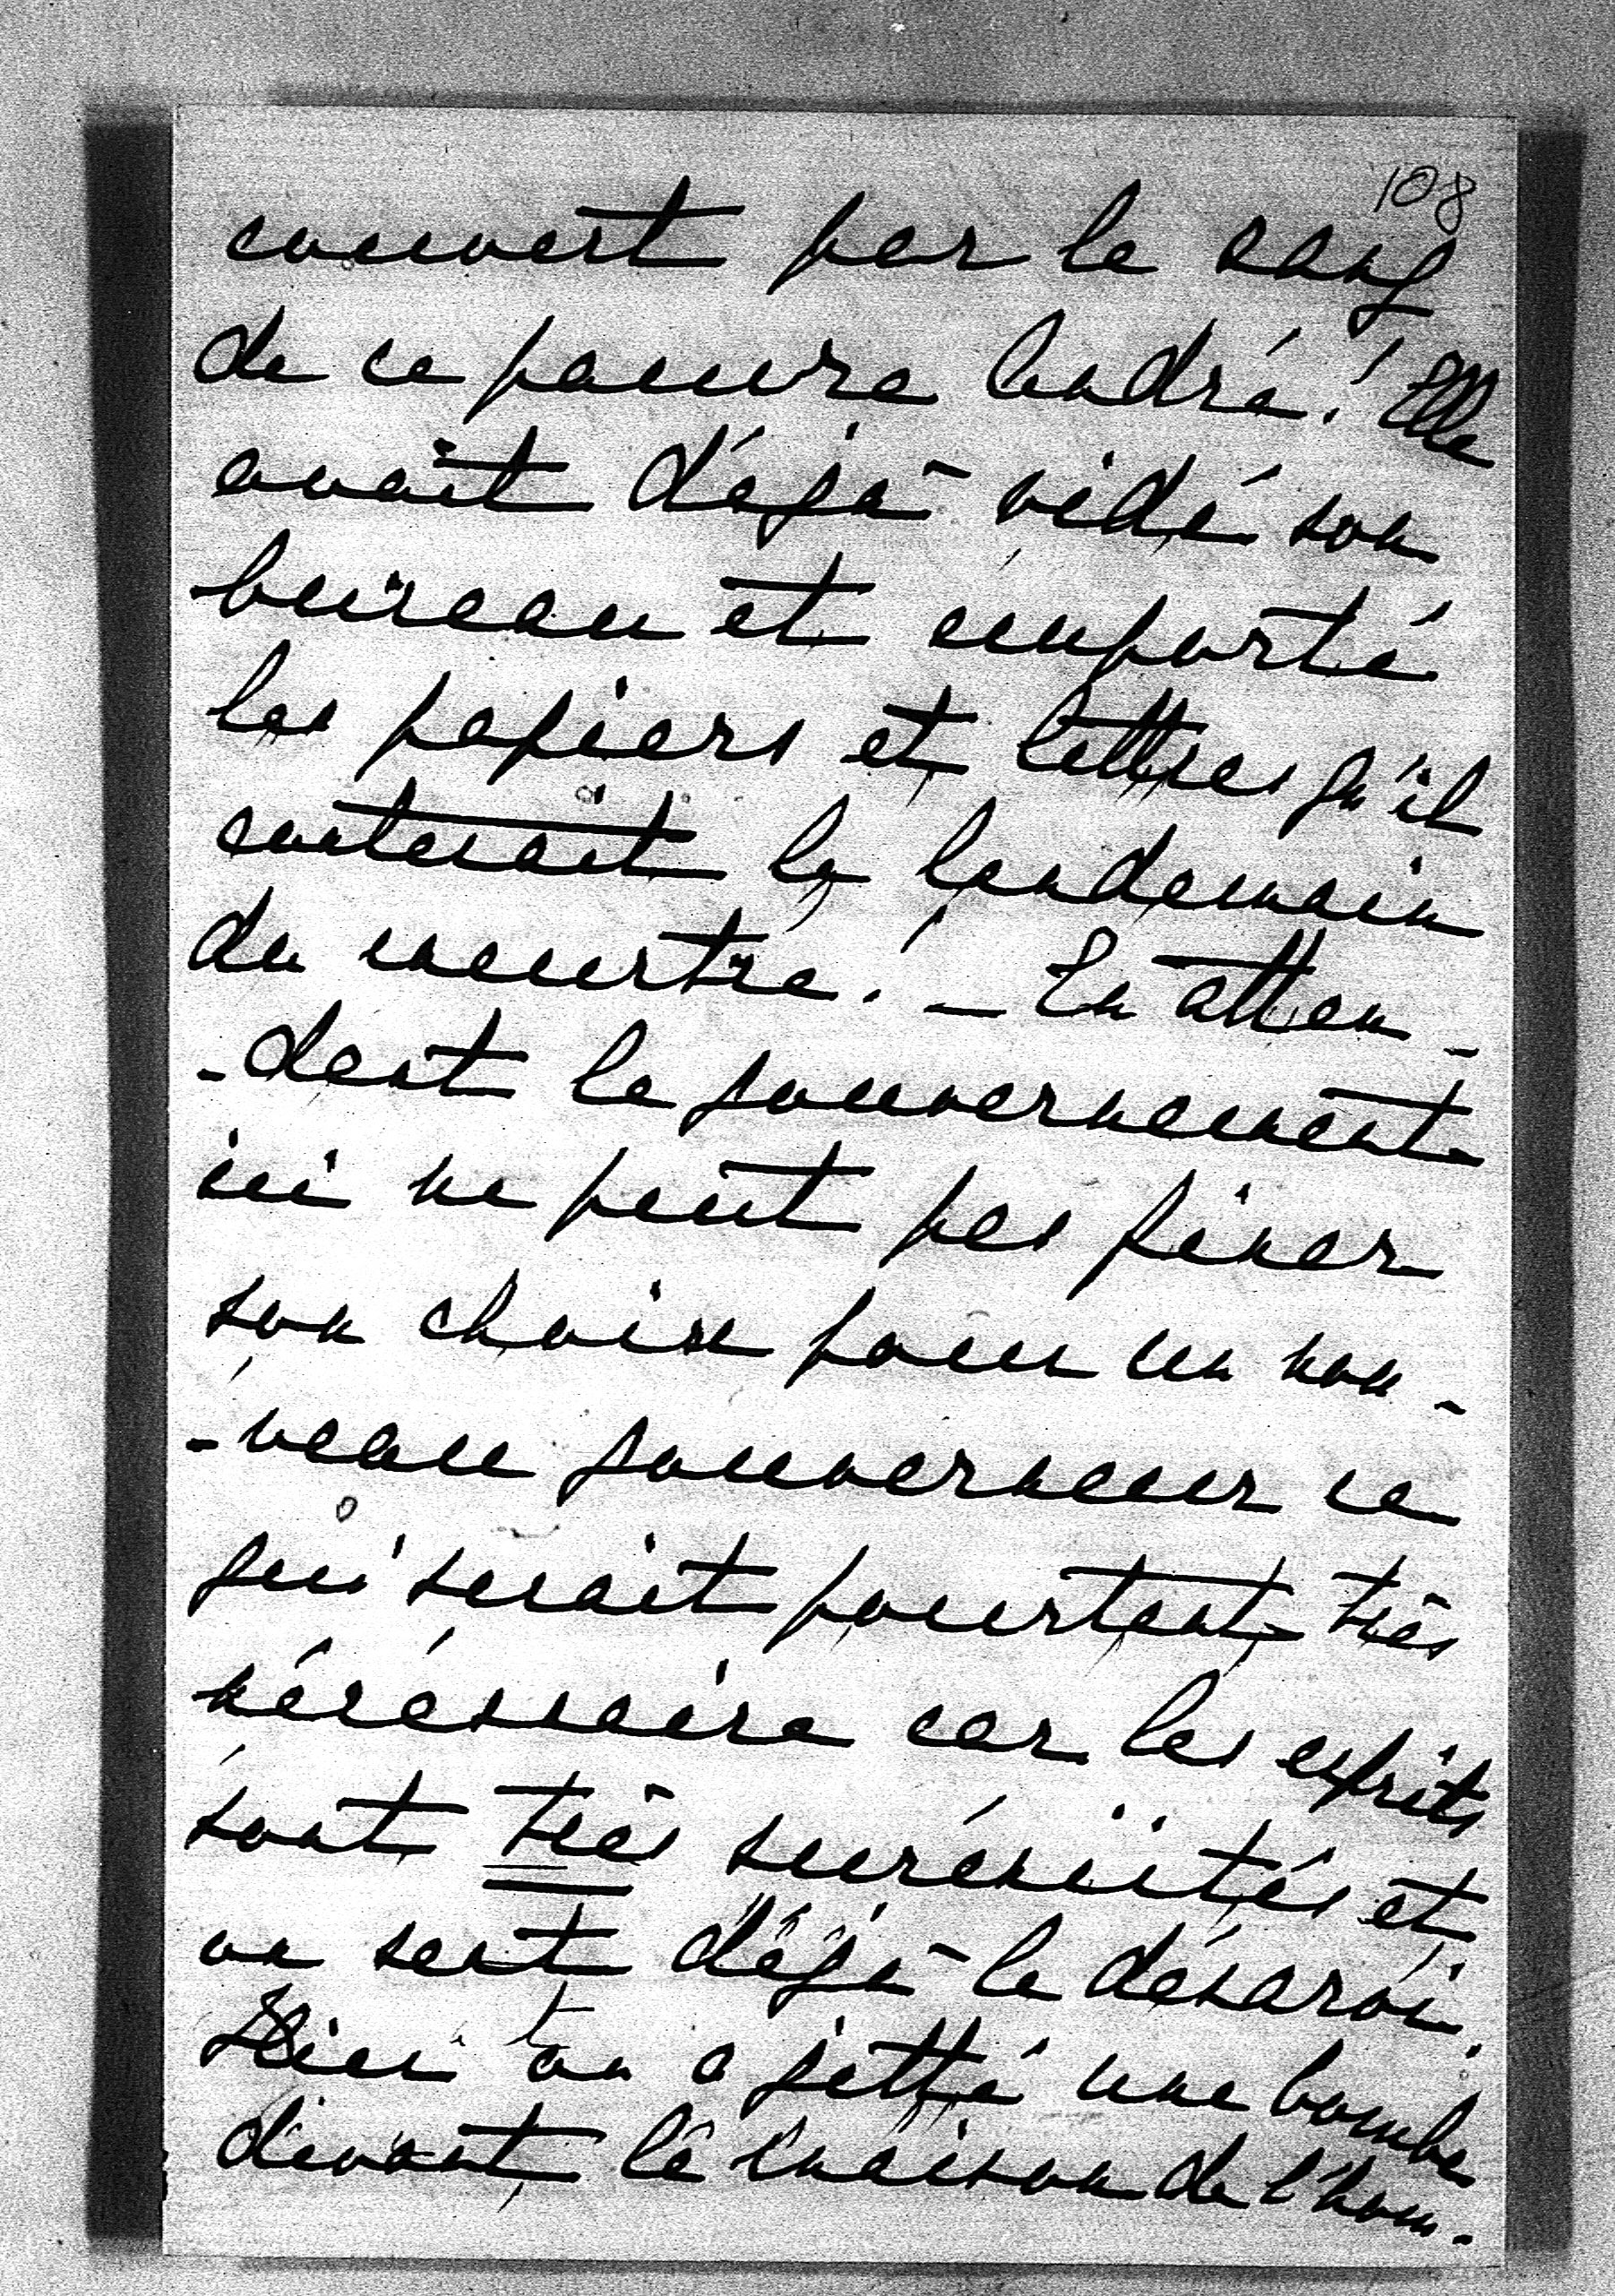 108
couvert par le sang
de ce pauvre André! Elle
avait déjà vidé son
bureau et emporté
les papiers et lettres qu'il
contenait le lendemain
du meurtre. — En atten-
-dant le gouvernement
ici ne peut pas fixer
son choix pour un nou-
-veau gouverneur ce
qui serait pourtant très
nécéssaire car les esprits
sont très surexcités et
on sent déjà le désaroi.
Hier on a jetté une bombe
devant la maison de l'hom-